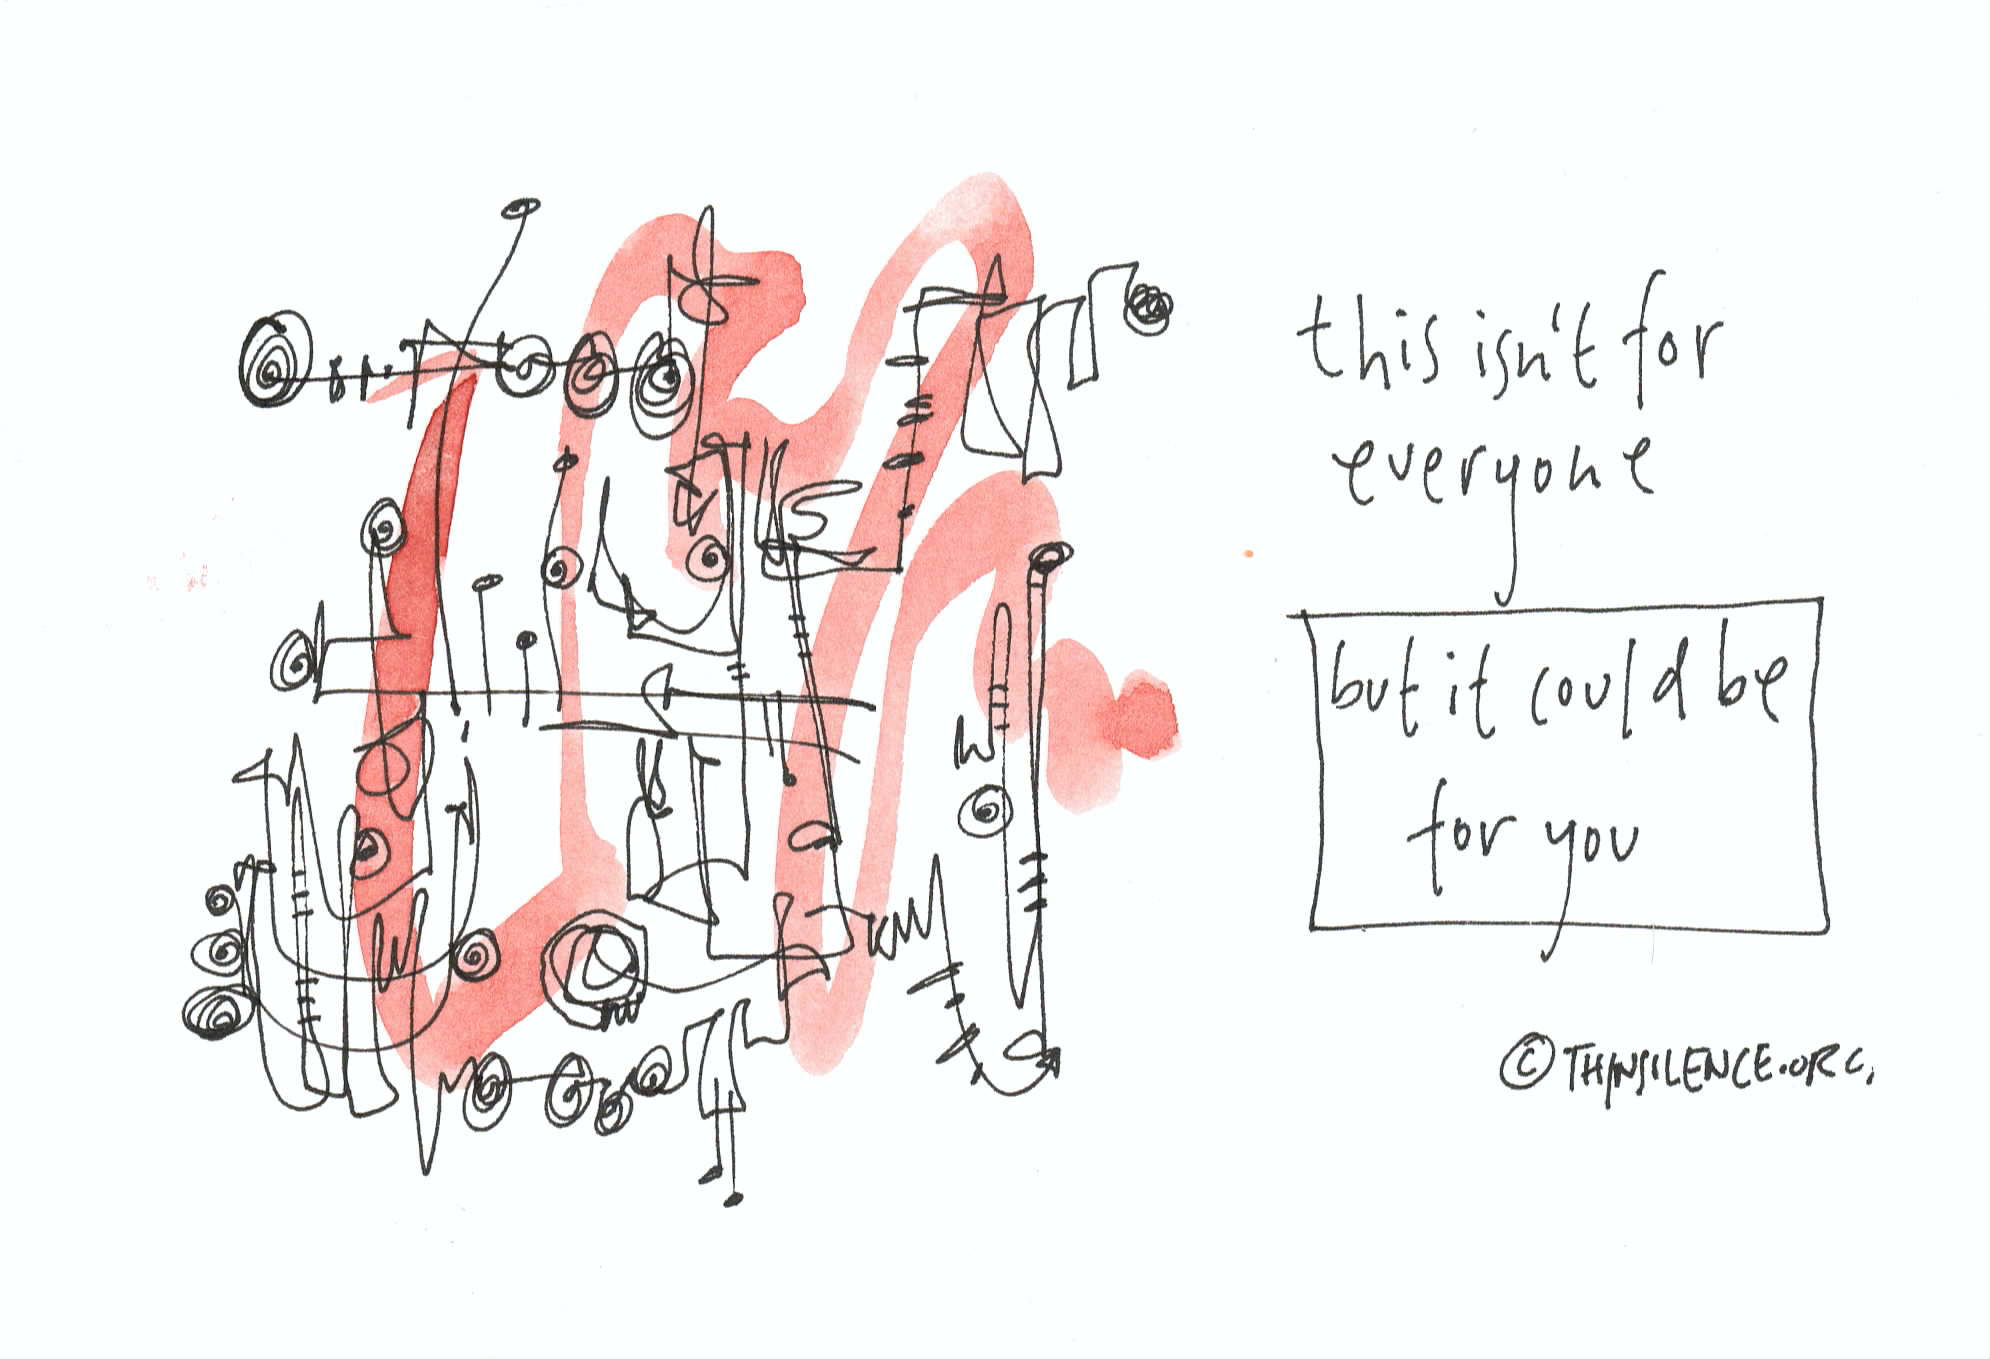 this isn't for
everyone
but it could be
for you
© THINSILENCE.ORG.